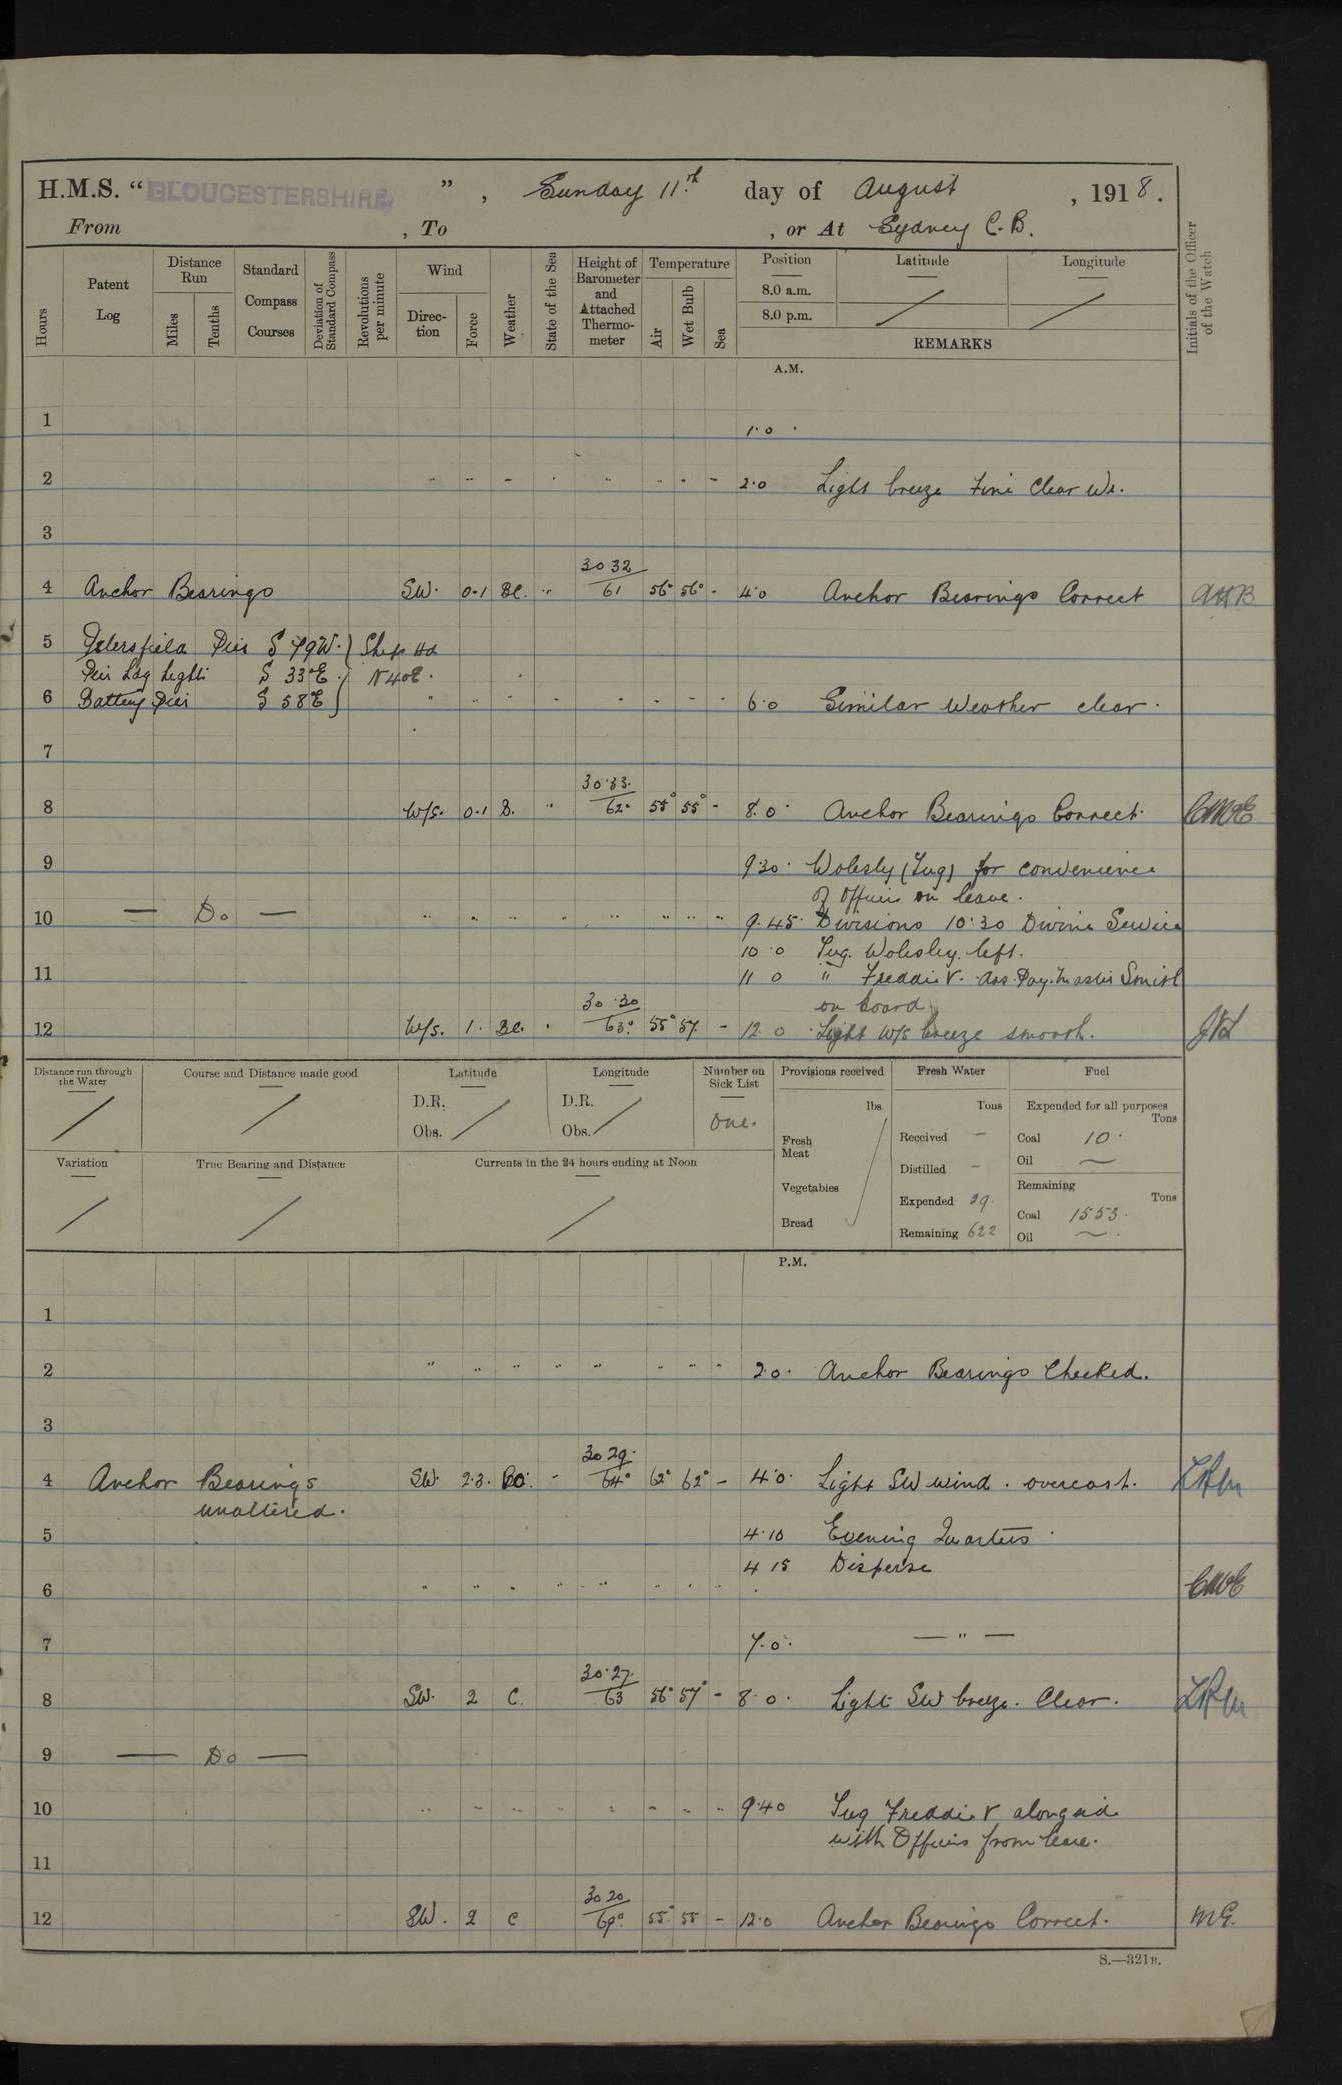 H.M.S. "GLOUCESTERSHIRE", Sunday 11th day of August, 1918.
From , To , or At Sydney C.B.
Hours
Patent Log
Distance Run
Miles
Tenths
Standard Compass Courses
Deviation of Standard Compass
Revolutions per minute
Wind
Direction
Force
Weather
State of the Sea
Height of Barometer and Attached Thermometer
Temperature
Air
Wet Bulb
Sea
Position
8.0 a.m.
8.0 p.m.
Latitude
Longitude
REMARKS
Initials of the Officer of the Watch
A.M.
1 1.0
2 " " " " " " " " 2.0 Light breeze Fine Clear Wr.
3
4 Anchor Bearings SW. 0.1 BC. " 30 32/61 56° 56° - 4.0 Anchor Bearings Correct
5 Petersfield Pier S 79W. Ship Hd
Pier Ldg Lights S 33°E. N40E.
6 Battery Pier S 58°E " " " " " " " " 6.0 Similar Weather clear.
7
8 W/S. 0.1 B. " 30.33/62° 55° 55° - 8.0 Anchor Bearings Correct. CMVE
9 9.30 Wolesly (Tug) for convenience
of officers on leave.
10 — Do — " " " " " " " " 9.45 Divisions 10:30 Divine Service
10.0 Tug. Wolesley left.
11 11 0 " Freddie V. Ass. Pay. Master
on board
12 W/S. 1. BC. " 30.30/63° 55° 57 - 12.0 Light W/S breeze smooth.
Distance run through the Water
Course and Distance made good
Latitude
D.R.
Obs.
Longitude
D.R.
Obs.
Number on Sick List
One.
Variation
True Bearing and Distance
Currents in the 24 hours ending at Noon
Provisions received
lbs.
Fresh Meat
Vegetables
Bread
Fresh Water
Tons
Received -
Distilled -
Expended 29.
Remaining 622
Fuel
Expended for all purposes
Tons
Coal 10.
Oil
Remaining
Tons
Coal 1553.
Oil
P.M.
1
2 " " " " " " " " 2.0. Anchor Bearings Checked.
3
4 Anchor Bearings SW. 2.3. 30 29./64° 62° 62° - 4.0. Light SW wind. overcast.
unaltered.
5 4.10 Evening Quarters
4 15 Disperse
6 " " " " " " " " CMVE
7 7.0. — " —
8 SW. 2 C. 30.27./63 56° 57° - 8.0. Light SW breeze. Clear.
9 — Do —
10 " " " " " " " " 9.40 Tug Freddie V alongside
with Officers from leave.
11
12 SW. 2 C 30 20/69° 55° 55 - 12.0 Anchor Bearings Correct. MG.
S.—321B.